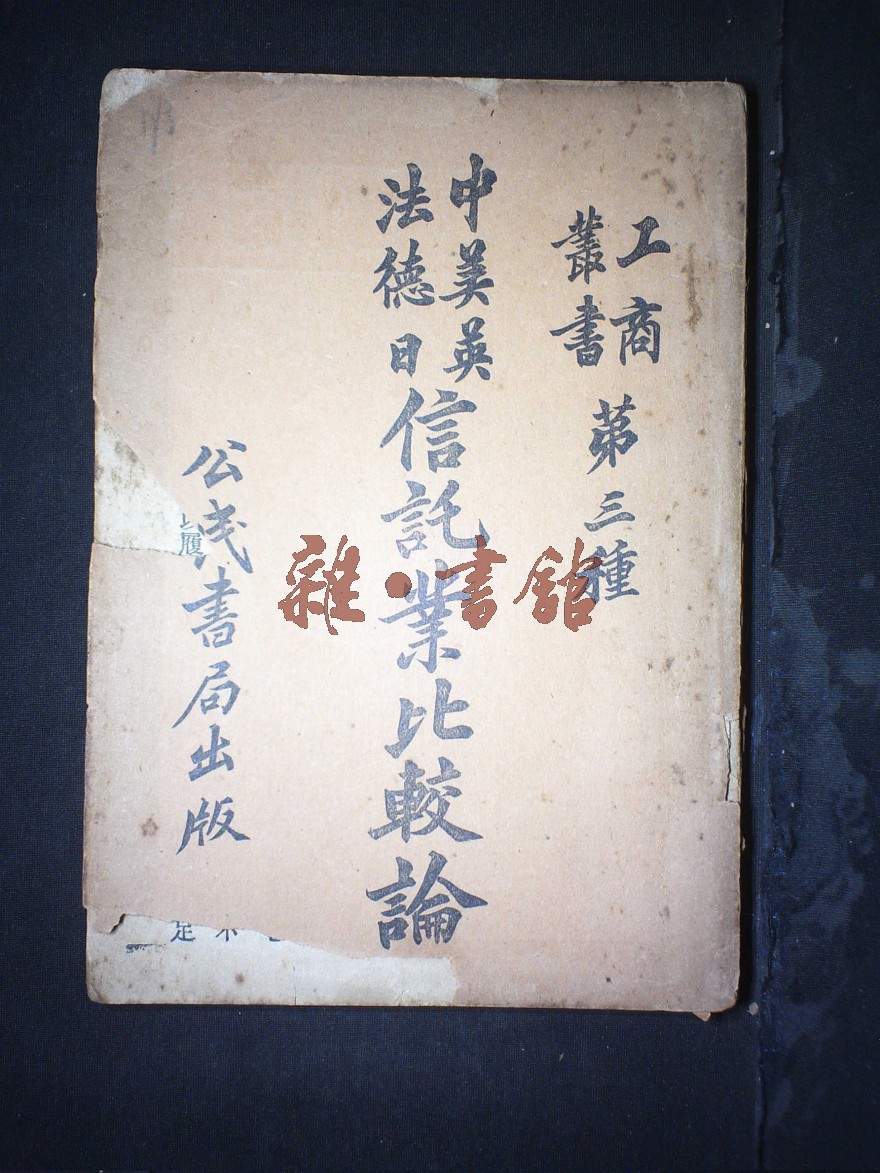 工商
叢書
第三種
中美英
法德日
信託業比較論
公民書局出版
雜·書館
履
足